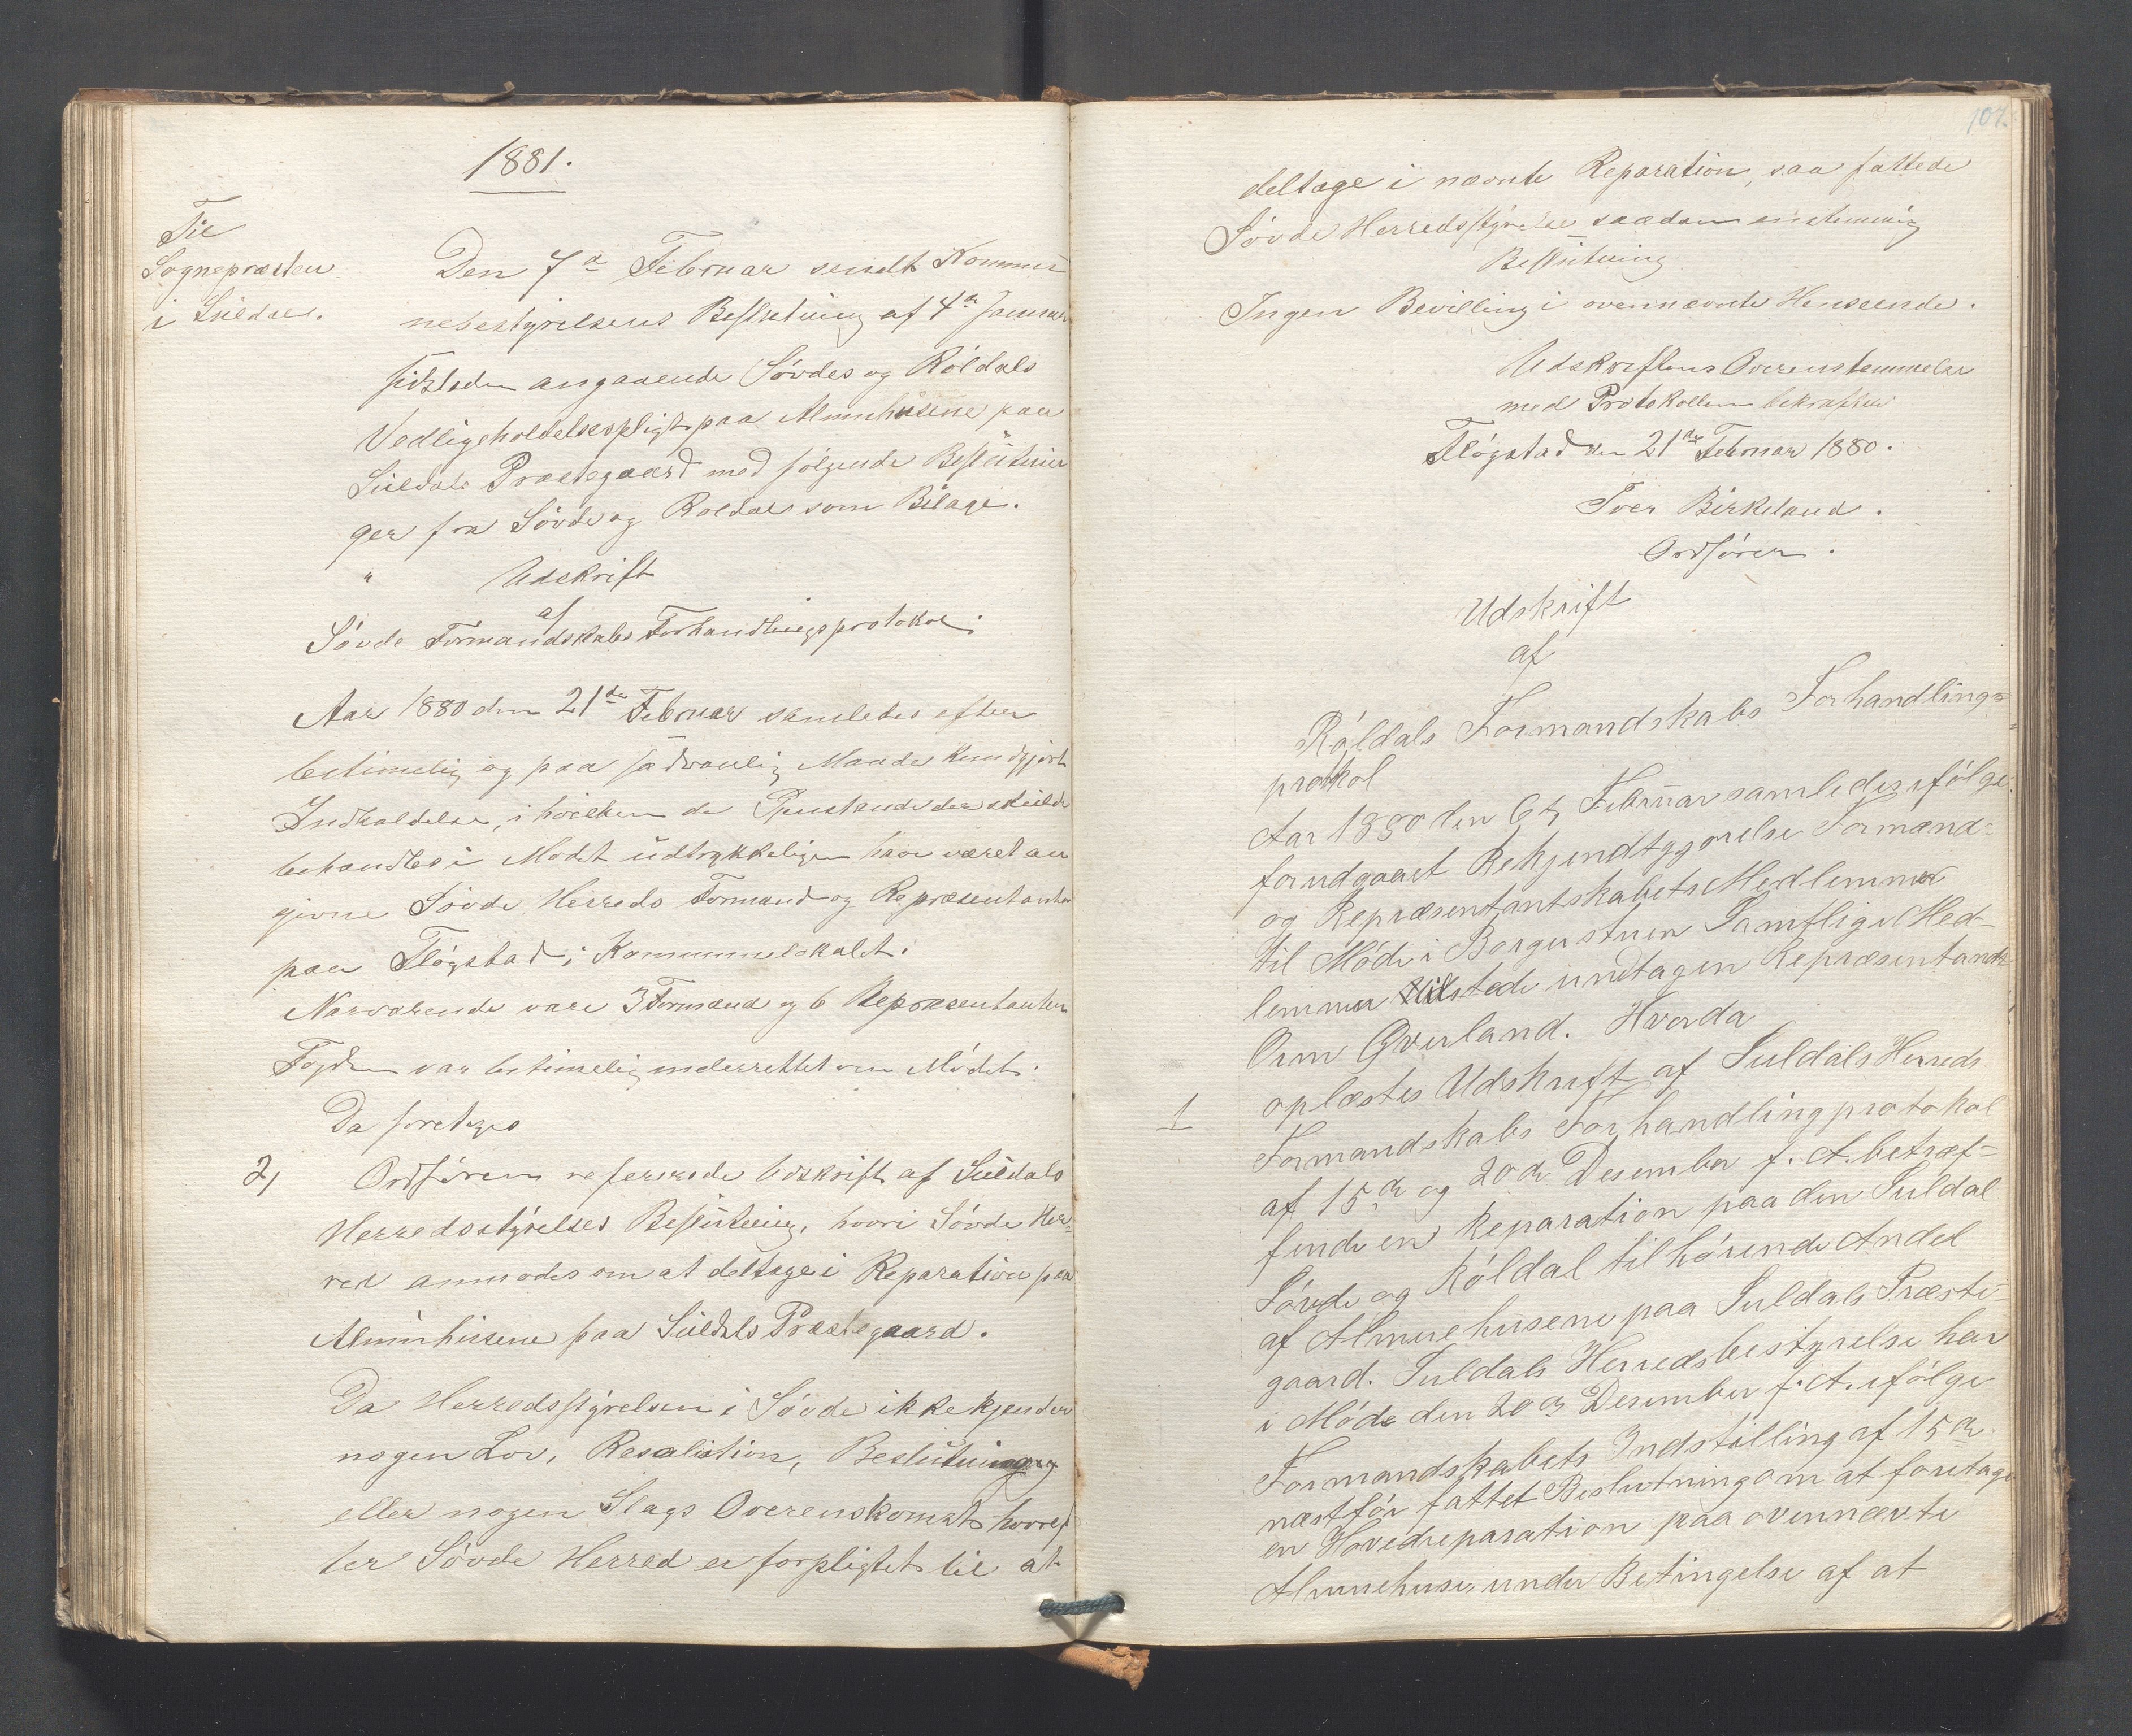 1881.
Til
Sognepræsten
i Suldal.
Den 7de Februar sendt Kommu-
nebestyrelsens Beslutning af 4de Januar
sidstleden angaaende Søvdes og Røldals
Vedligeholdelsespligt paa Almuehusene paa
Suldals Præstegaard med følgende Beslutnin
ger fra Søvde og Roldal som Bilage.
" Udskrift
af
Søvde Formandskabs Forhandlingsprotokol.
Aar 1880 den 21de Februar samledes efter
betimelig og paa sædvanlig Maade kundgjort
Indkaldelse, i hvilken de Gjenstande der skulde
behandles i Mødet udtrykkeligen have været an
givne Søvde Herreds Formænd og Repræsentanter
paa Fløgstad i Kommunelokalet.
Nærværende vare 3 Formænd og 6 Repræsentanter
Fogden var betimelig underrettet om Mødet.
Da foretoges
2, Ordføreren refererede Udskrift af Suldals
Herredsstyrelses Beslutning, hvori Søvde Her-
red anmodes om at deltage i Reparation paa
Almuehusene paa Suldals Præstegaard.
Da Herredsstyrelsen i Søvde ikke kjender
nogen Lov, Resolution, Beslutning
eller nogen Slags Overenskomst hvoref
ter Søvde Herred er forpligtet til at
107.
deltage i nævnte Reparation, saa fattede
Søvde Herredsstyrelse saadan enstemmig
Beslutning
Ingen Bevilling i ovennævnte Henseende.
Udskriftens Overensstemmelse
med Protokollen bekræftes
Fløgstad den 21de Februar 1880.
Iver Birkeland.
Ordfører.
Udskrift
af
Røldals Formandskabs Forhandlings-
protokol
Aar 1880 den 6te Februar samledes ifølge
forudgaaet Bekjendtgjørelse Formænd-
og Repræsentantskabets Medlemmer
til Møde i Borgerstuen Samtlige Med-
lemmer tilstede undtagen Repræsentant
Orm Øverland. Hvorda
1 oplæstes Udskrift af Suldals Herreds
Formandskabs Forhandlingprotokol
af 15de og 20de Desember f. A. betræf-
fende en Reparation paa den Suldal
Søvde og Røldal tilhørende Andel
af Almuehusene paa Suldals Præste-
gaard. Suldals Herredsbestyrelse har
i Møde den 20de Desember f. A. ifølge
Formandskabets Indstilling af 15de
næstfør fattet Beslutning om at foretage
en Hovedreparation paa ovennævte
Almuehuse, under Betingelse af at